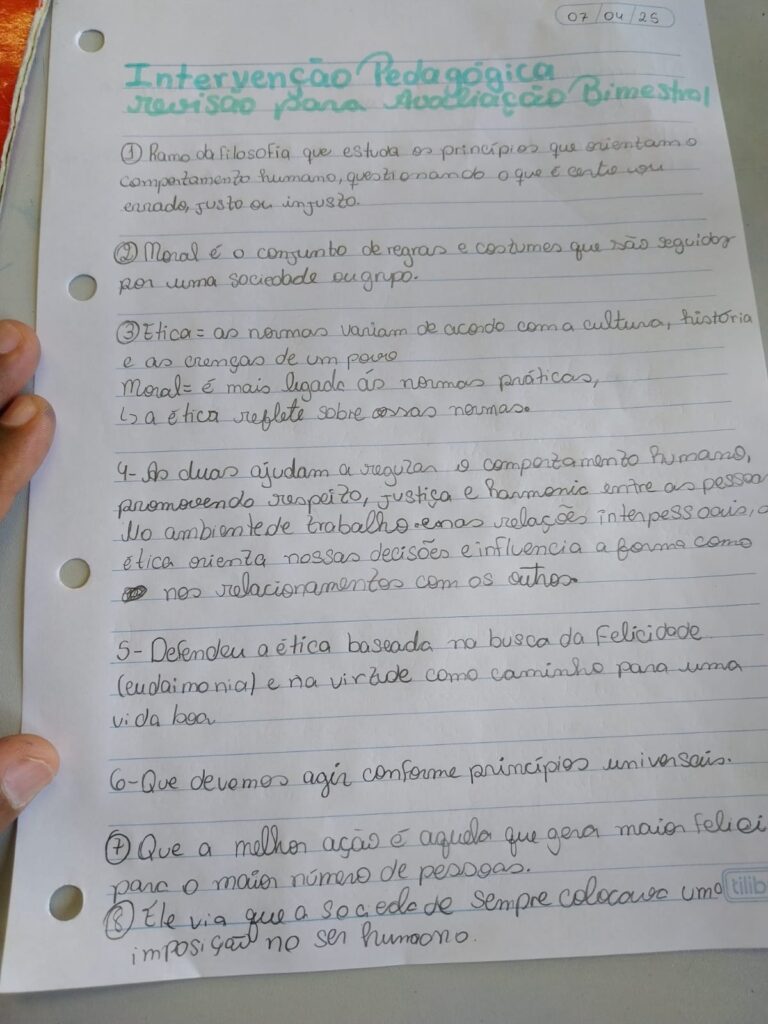 07/04/25
Intervenção Pedagógica
revisão para Avaliação Bimestral
① Ramo da filosofia que estuda os princípios que orientam o
comportamento humano, questionando o que é certo ou
errado, justo ou injusto.
② Moral é o conjunto de regras e costumes que são seguidos
por uma sociedade ou grupo.
③ Etica = as normas variam de acordo com a cultura, história
e as crenças de um povo
Moral = é mais ligada ás normas práticas,
↳ a ética reflete sobre essas normas.
4- As duas ajudam a regular o comportamento humano,
promovendo respeito, justiça e harmonia entre as pessoas
No ambiente de trabalho e nas relações interpessoais, a
ética orienta nossas decisões e influencia a forma como
nos relacionamentos com os outros.
5- Defendeu a ética baseada na busca da felicidade
(eudaimonia) e na virtude como caminho para uma
vida boa
6- Que devemos agir conforme princípios universais.
⑦ Que a melhor ação é aquela que gera maior felici
para o maior número de pessoas.
⑧ Ele via que a sociedade sempre colocava uma
imposição no ser humano.
tilib